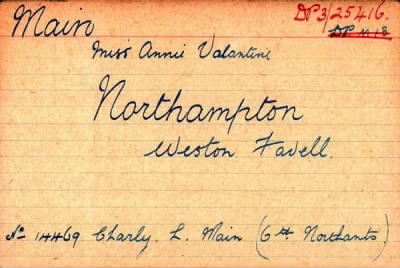 Main
DP3/25416.
DP 1118
Miss Annie Valantine
Northampton
Weston Favell.
No 14469 Charly. L. Main (6th Northants.)